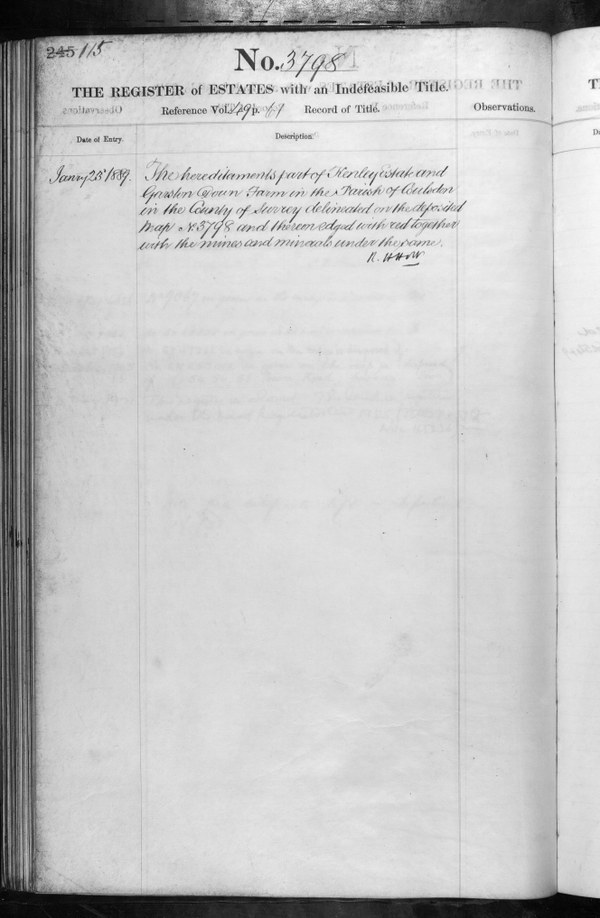 245 115
No. 3798
THE REGISTER of ESTATES with an Indefeasible Title.
Reference Vol. 49 p. Record of Title. Observations.
Date of Entry. Description.
Janry 25 1889. The hereditaments part of Kenley Estate and
Garston Down Farm in the Parish of Coulsdon
in the County of Surrey delineated on the deposited
Map No 3798 and thereon edged with red together
with the mines and minerals under the same.
R. H